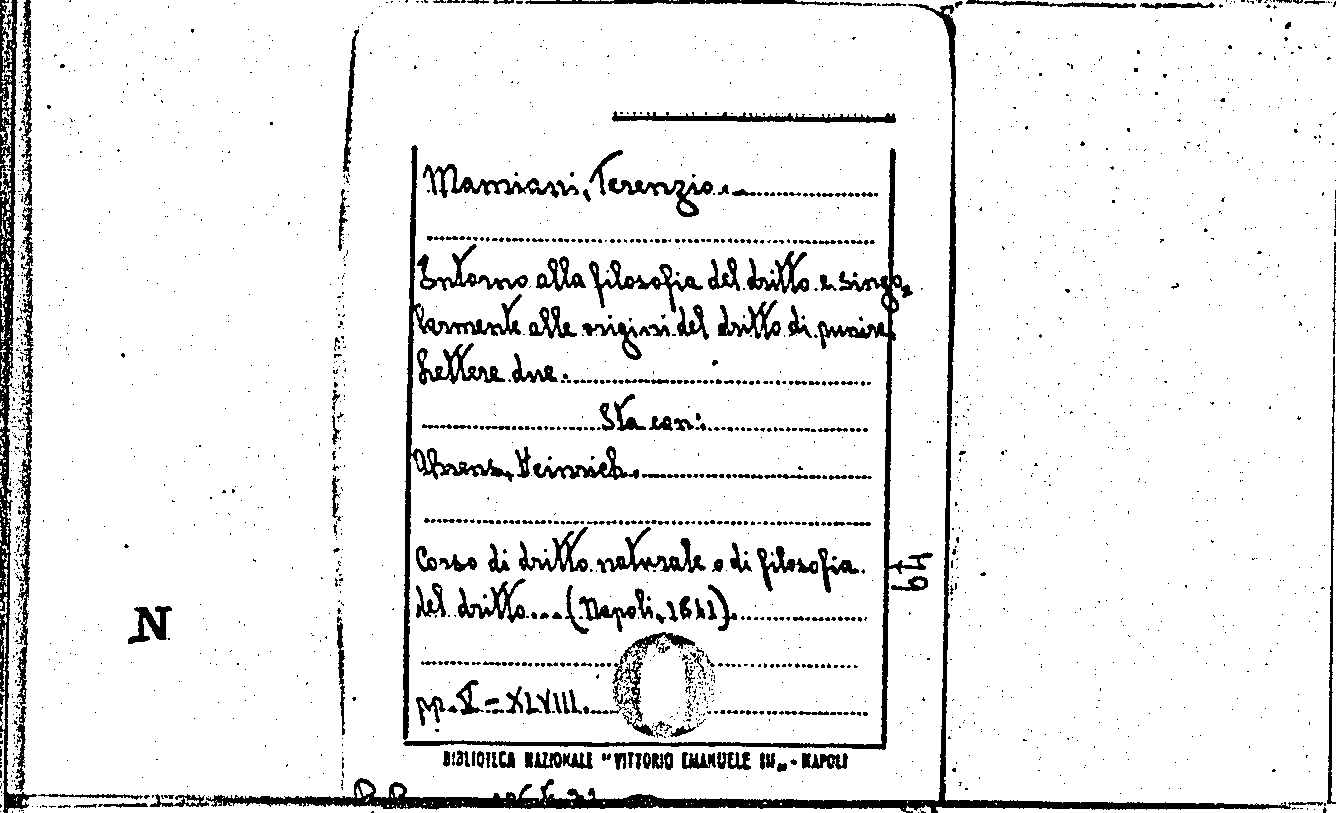 Mamiani, Terenzio.
Intorno alla filosofia del dritto e singo=
larmente alle origini del dritto di punire.
Lettere due.
Sta con:
Ahrens, Heinrich.
Corso di dritto naturale o di filosofia
del dritto... (Napoli, 1841).
pp. V - XLVIII.
BIBLIOTECA NAZIONALE "VITTORIO EMANUELE III" - NAPOLI
N